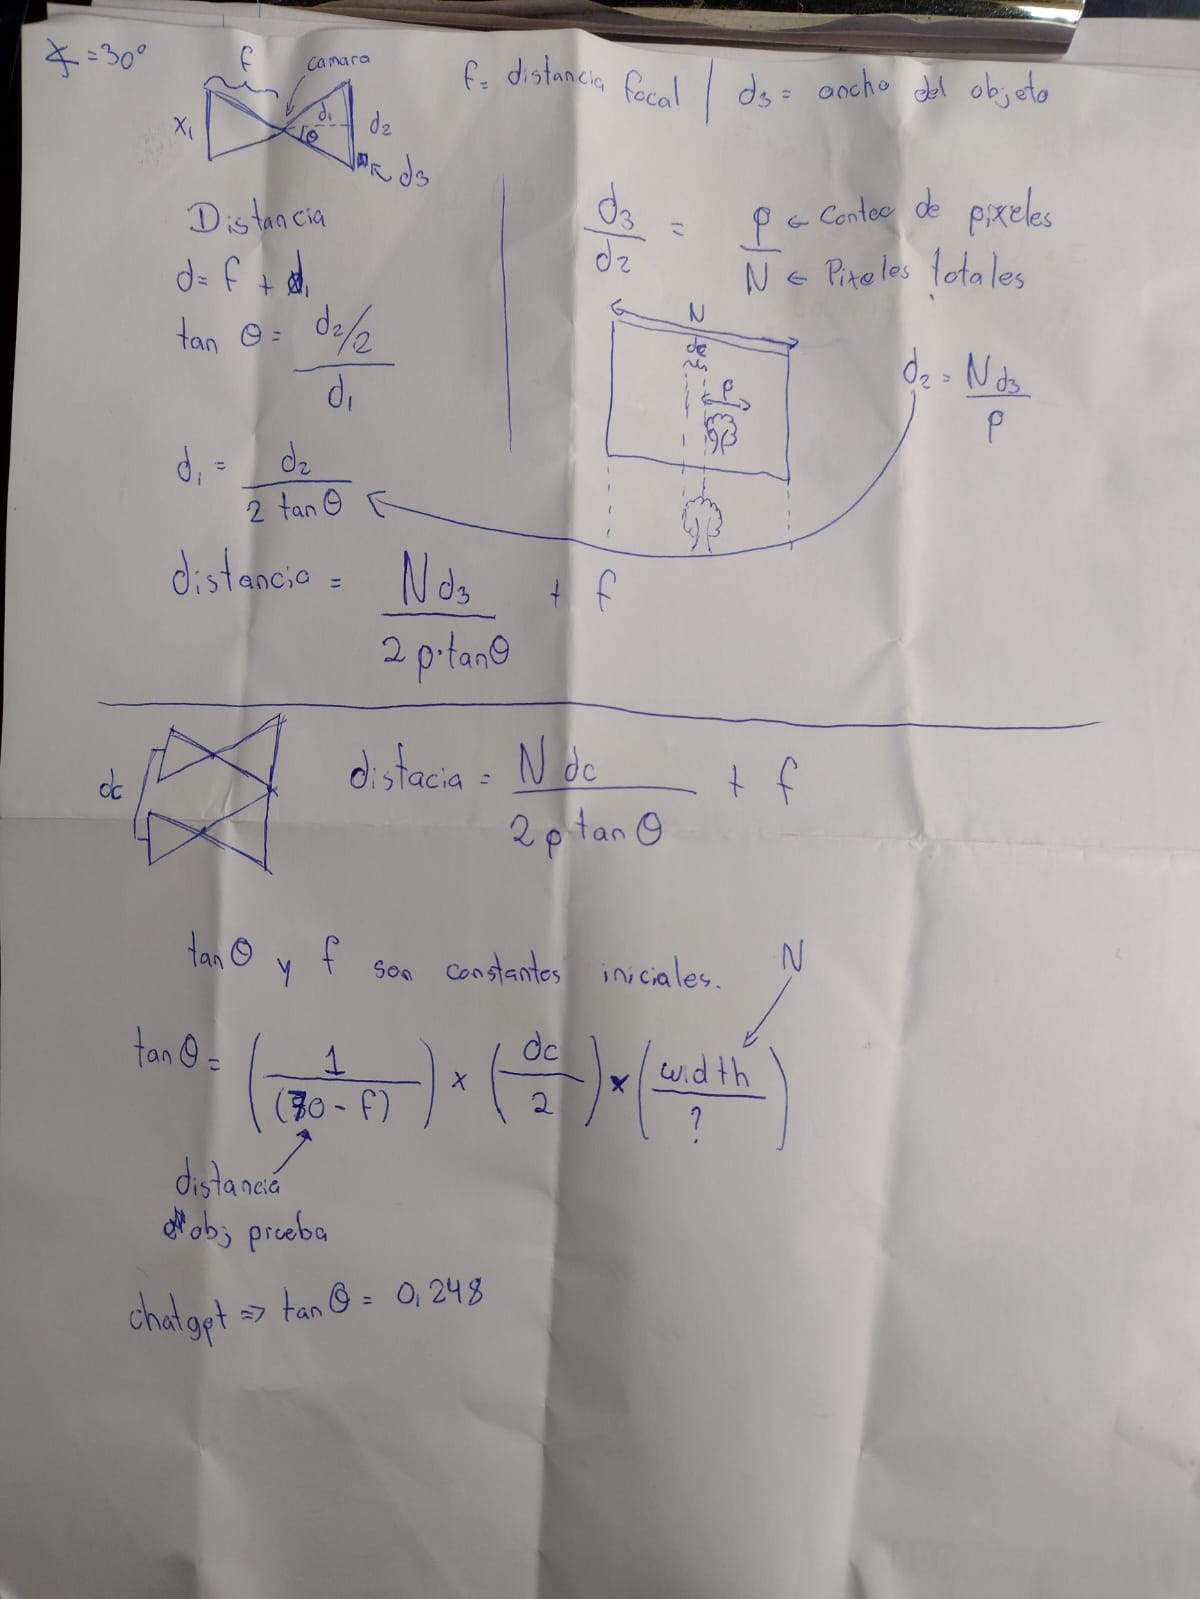 ∡ = 30°
f
camara
x₁
d₁
θ
d₂
d₃
f = distancia focal | d₃ = ancho del objeto
Distancia
d = f + d₁
tan θ = (d₂/2)/d₁
d₁ = d₂/(2 tan θ)
d₃/d₂ = p/N
p ← Conteo de pixeles
N ← Pixeles totales
N
dc
p
d₂ = N d₃/p
distancia = N d₃/(2 p·tan θ) + f
dc
distacia = N dc/(2 p tan θ) + f
tan θ y f son constantes iniciales.
N
tan θ = (1/(70 - f)) × (dc/2) × (width/?)
distancia
obj prueba
chatgpt ⇒ tan θ = 0,248